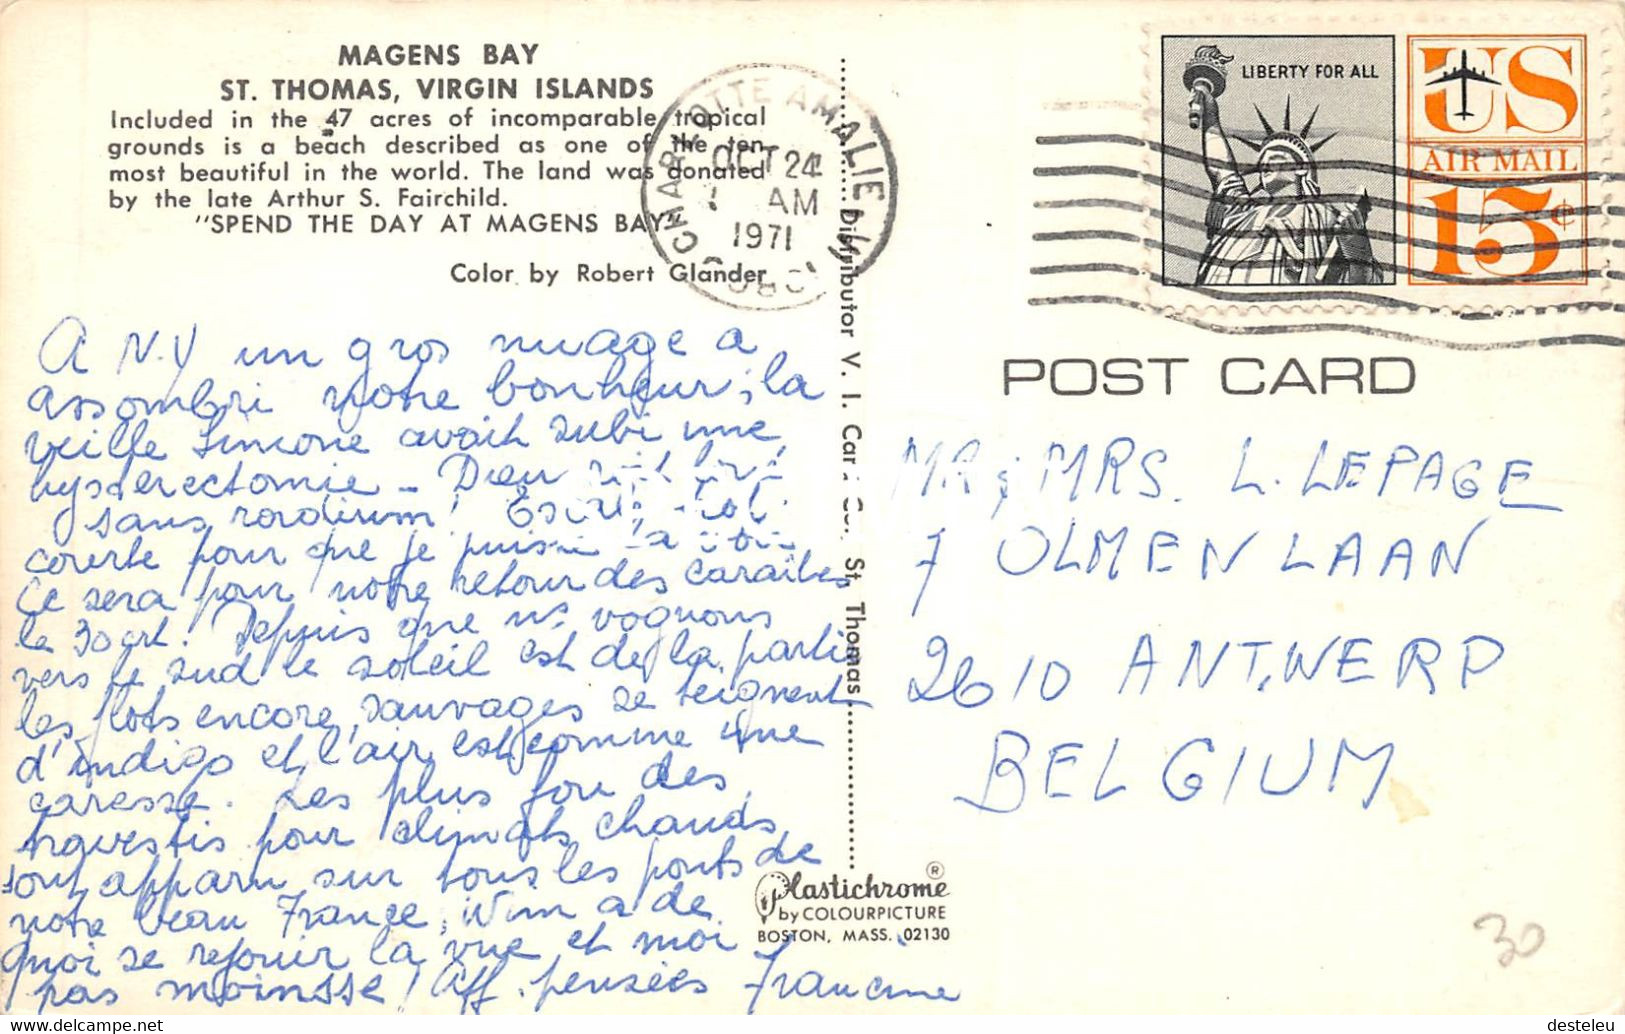 MAGENS BAY
ST. THOMAS, VIRGIN ISLANDS
Included in the 47 acres of incomparable tropical
grounds is a beach described as one of the ten
most beautiful in the world. The land was donated
by the late Arthur S. Fairchild.
"SPEND THE DAY AT MAGENS BAY"
Color by Robert Glander
CHARLOTTE AMALIE
OCT 24
AM
1971
LIBERTY FOR ALL
US
AIR MAIL
15¢
A N.Y un gros nuage a
assombri notre bonheur; la
veille Simone avait subi une
hysterectomie - Dieu
sans
pour que je
Ce sera pour notre retour des Caraïbes
le 30 oct. Depuis que ns voguons
vers le sud le soleil est de la partie
les flots encore sauvages se teignent
d'indigo et l'air est comme une
caresse. Les plus fou des
pour climats chauds
ont apparu sur tous les ponts de
notre beau France, Wim a de
quoi se rejouir la vue et moi
pas moinsse! Aff. pensées Francine
Distributor V. I. Card Co. St. Thomas
POST CARD
MR & MRS. L. LEPAGE
7 OLMENLAAN
2610 ANTWERP
BELGIUM
Plastichrome ®
by COLOURPICTURE
BOSTON, MASS. 02130
30
desteleu